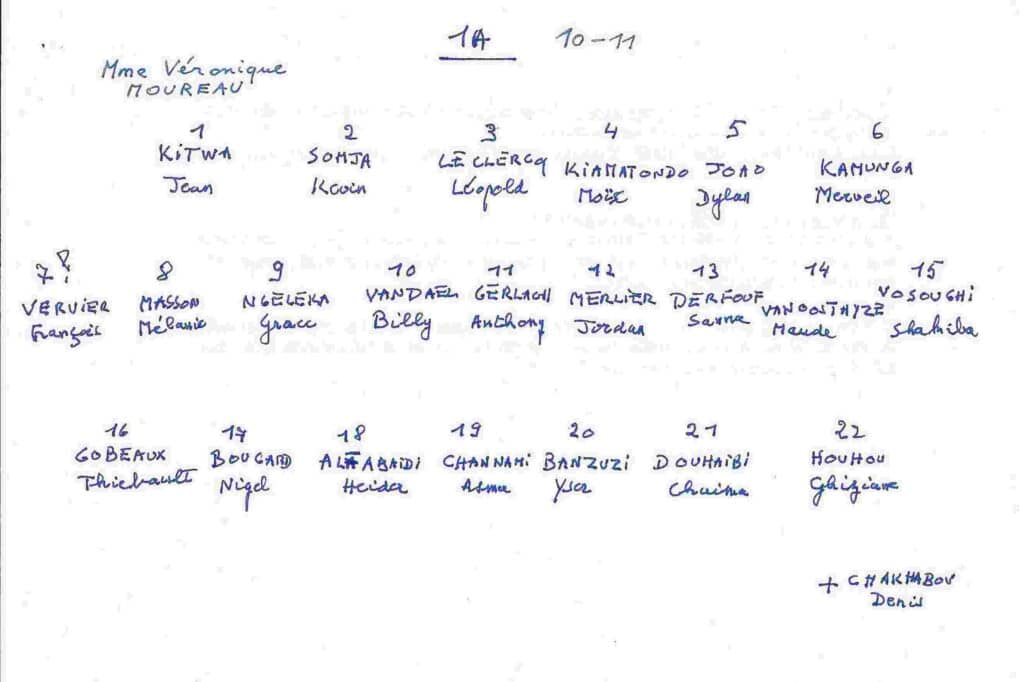 1A 10-11
Mme Véronique
MOUREAU
1 2 3 4 5 6
KITWA SOMJA LECLERCQ KIAMATONDO JOAO KAMUNGA
Jean Kevin Léopold Moïse Dylan Merveil
7? 8 9 10 11 12 13 14 15
VERVIER MASSON NGELEKA VANDAEL GERLACHI MERLIER DERFOUF VANOOSTHYZE VOSOUGHI
François Mélanie Grace Billy Anthony Jordan Sanna Maude Shakiba
16 17 18 19 20 21 22
GOBEAUX BOUGARD AL ABAIDI CHANNAHI BANZUZI DOUHAIBI HOUHOU
Thiebault Nigel Heider Asma Yser Chaima Ghiziane
+ CHAKHABOV
Denis